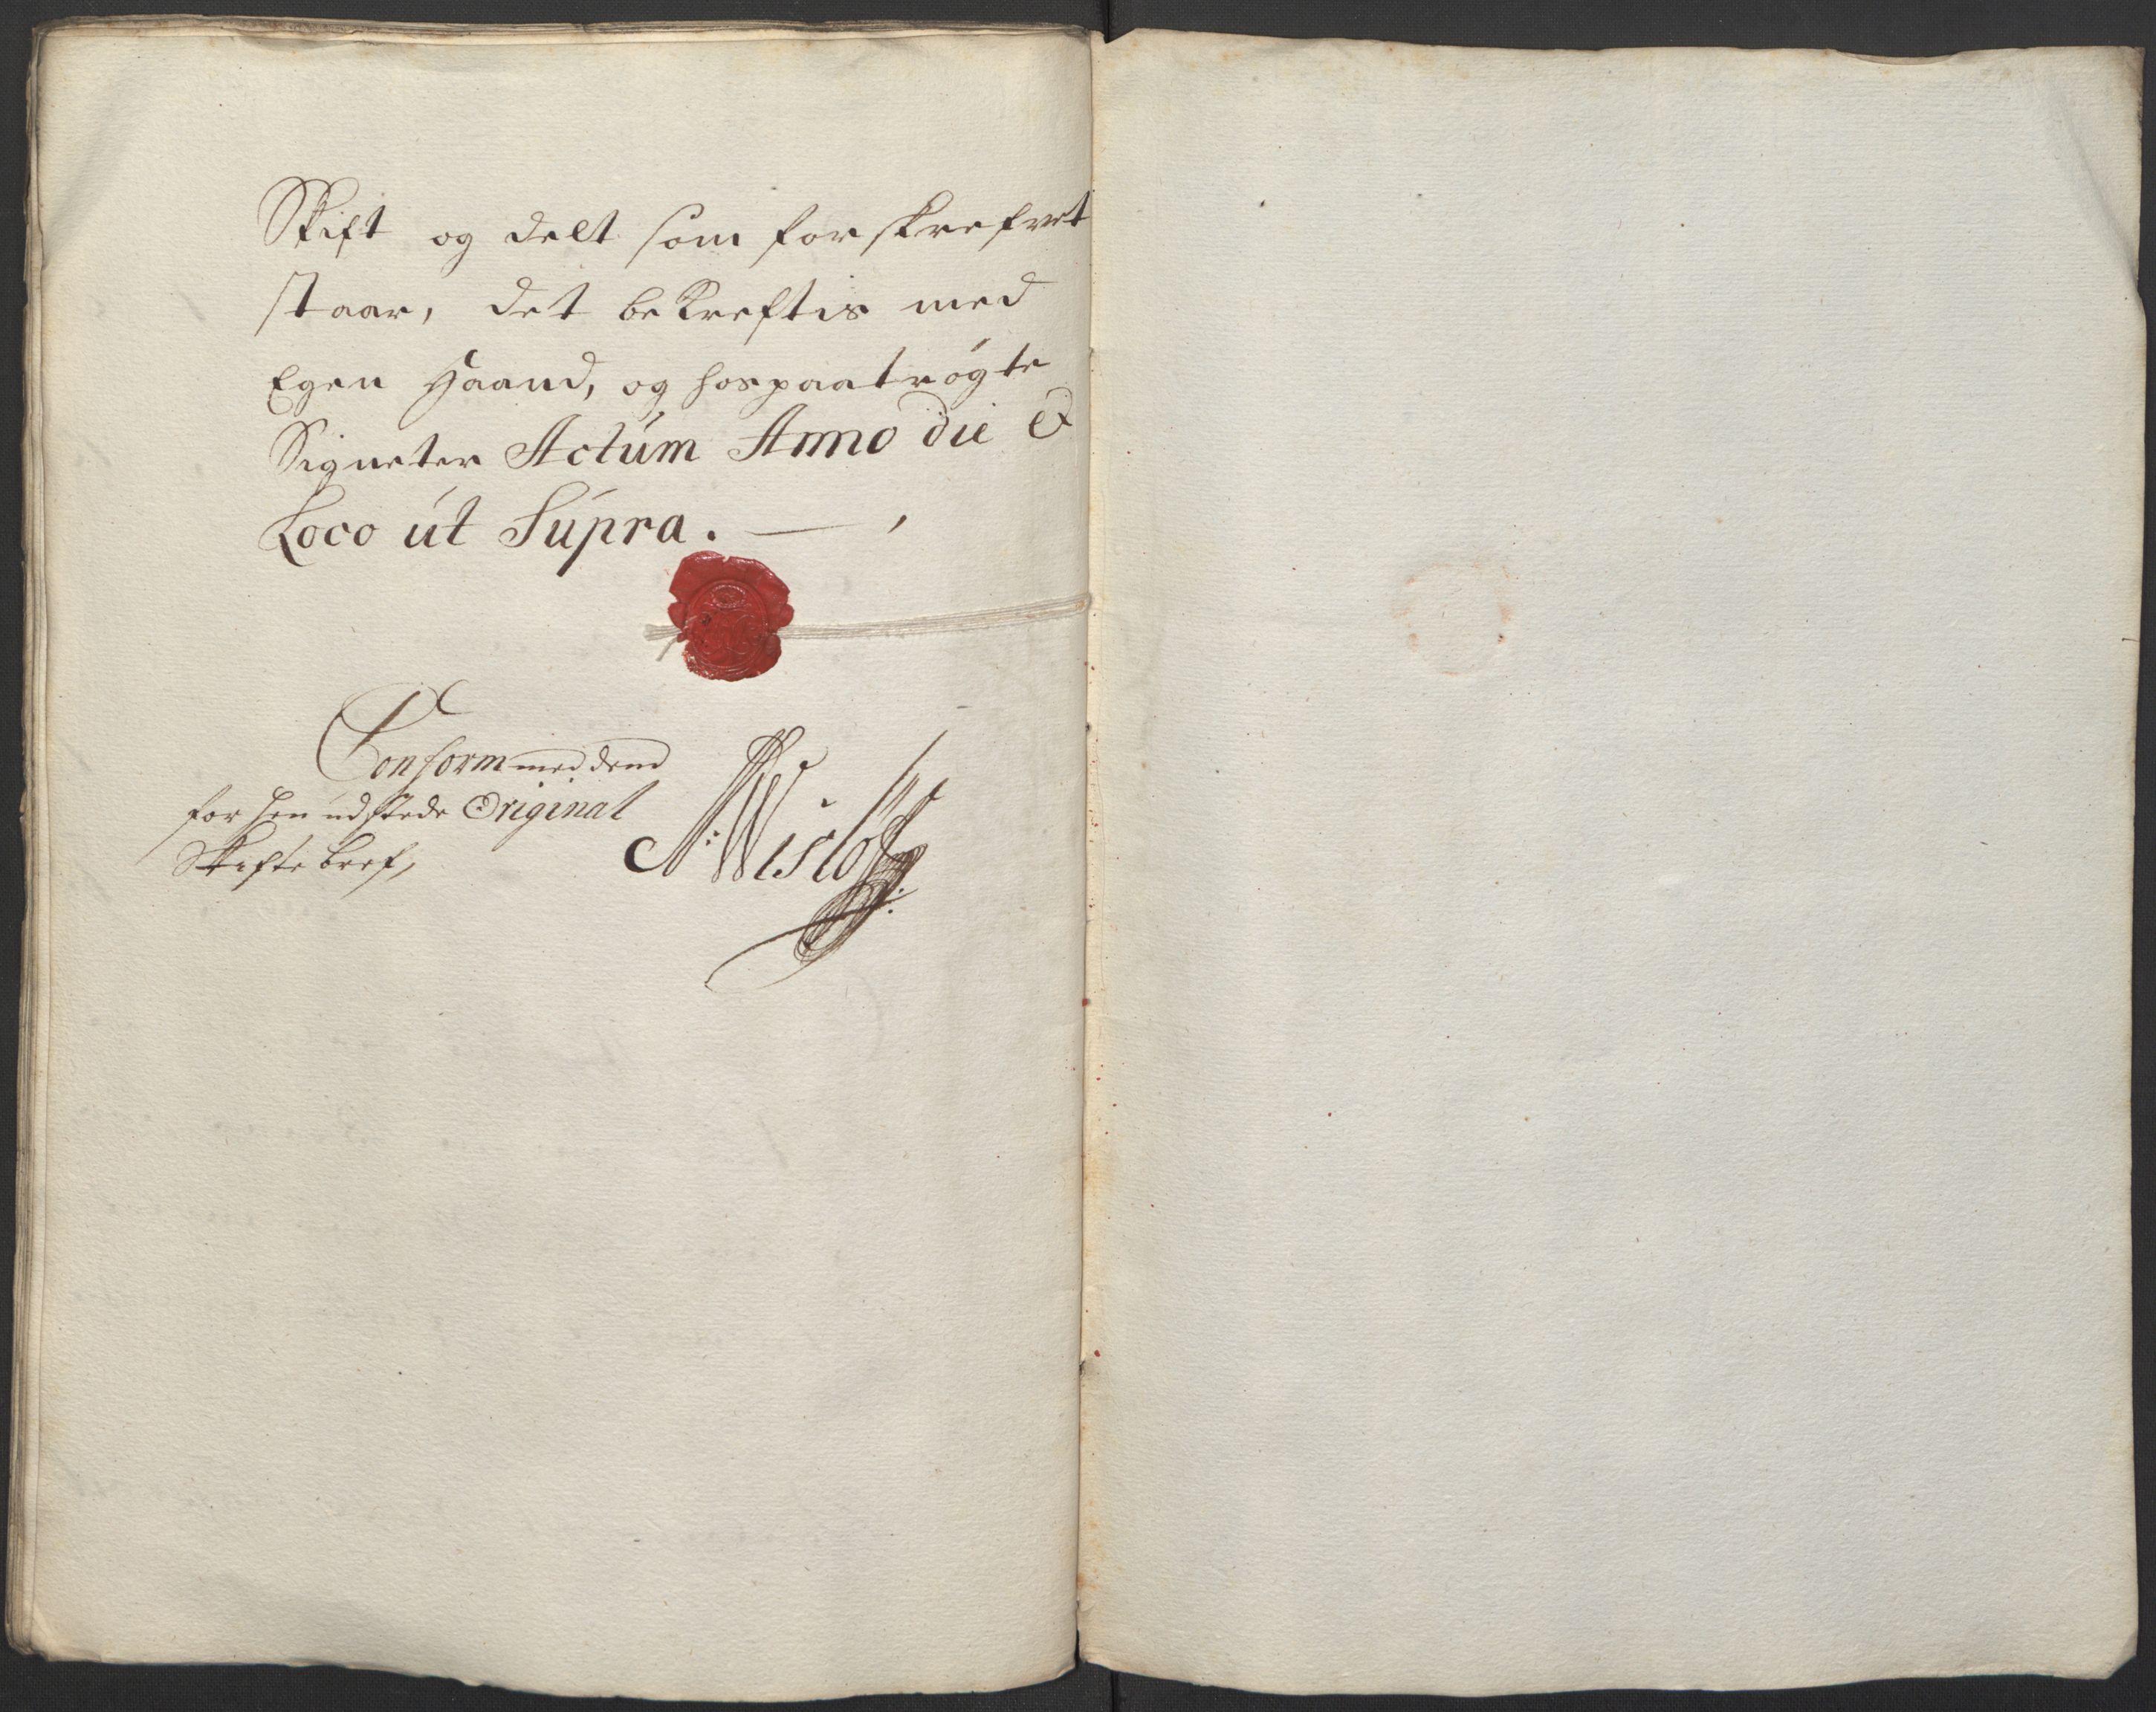 Skift og delt som forskrefvet
staar, det bekreftis med
Egen Haand, og hospaatrøgte
Signeter Actúm Anno die &
Loco út Súpra.
Conform med dend
for hen udstede Original
Skifte bref,
A: Wisløff